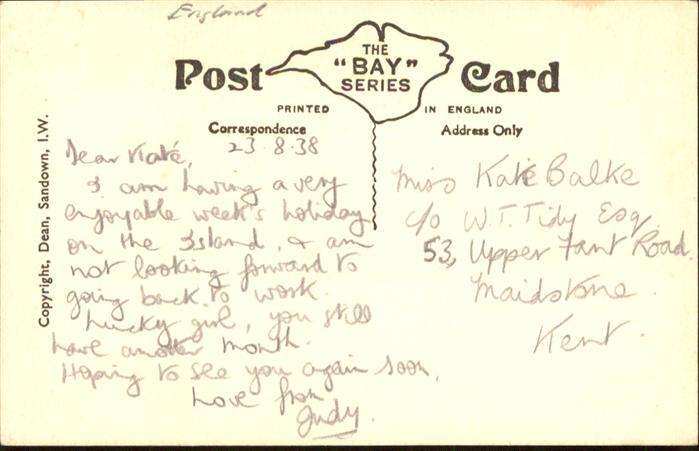 England
Post Card
THE
"BAY"
SERIES
PRINTED IN ENGLAND
Correspondence
Address Only
Copyright, Dean, Sandown, I.W.
23.8.38
Dear Katé,
I am having a very
enjoyable week's holiday
on the Island, & am
not looking forward to
going back to work.
Lucky girl, you still
have another month.
Hoping to see you again soon,
Love from
Judy.
Miss Kate Balke
c/o W.T. Tidy Esq
53, Upper Fant Road.
Maidstone.
Kent.